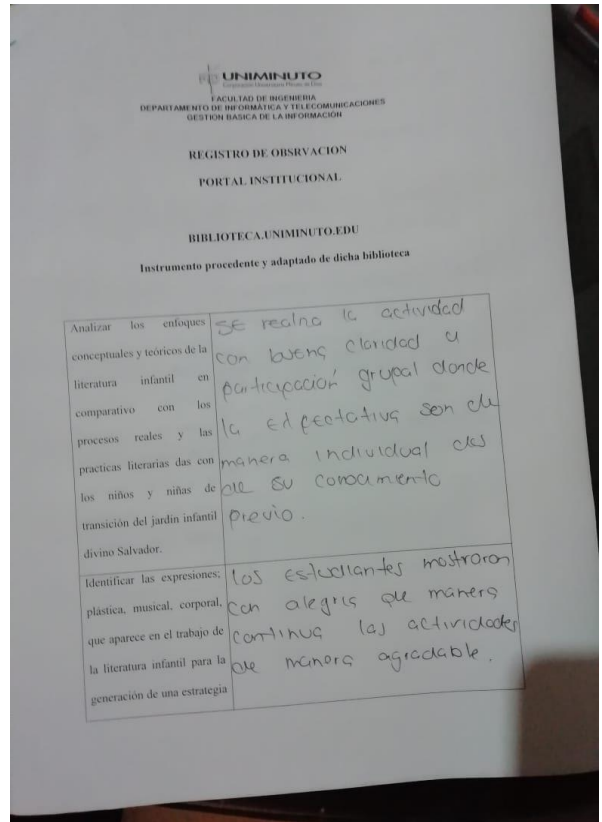 UNIMINUTO
Corporación Universitaria Minuto de Dios
FACULTAD DE INGENIERIA
DEPARTAMENTO DE INFORMÁTICA Y TELECOMUNICACIONES
GESTION BASICA DE LA INFORMACIÓN
REGISTRO DE OBSRVACION
PORTAL INSTITUCIONAL
BIBLIOTECA.UNIMINUTO.EDU
Instrumento procedente y adaptado de dicha biblioteca
Analizar los enfoques
conceptuales y teóricos de la
literatura infantil en
comparativo con los
procesos reales y las
practicas literarias das con
los niños y niñas de
transición del jardín infantil
divino Salvador.
SE realna la actividad
con buena claridad y
participación grupal donde
la expectativa son de
manera individual des
de su conocimiento
previo.
Identificar las expresiones;
plástica, musical, corporal,
que aparece en el trabajo de
la literatura infantil para la
generación de una estrategia
los estudiantes mostraron
con alegria de manera
continua las actividades
de manera agradable.